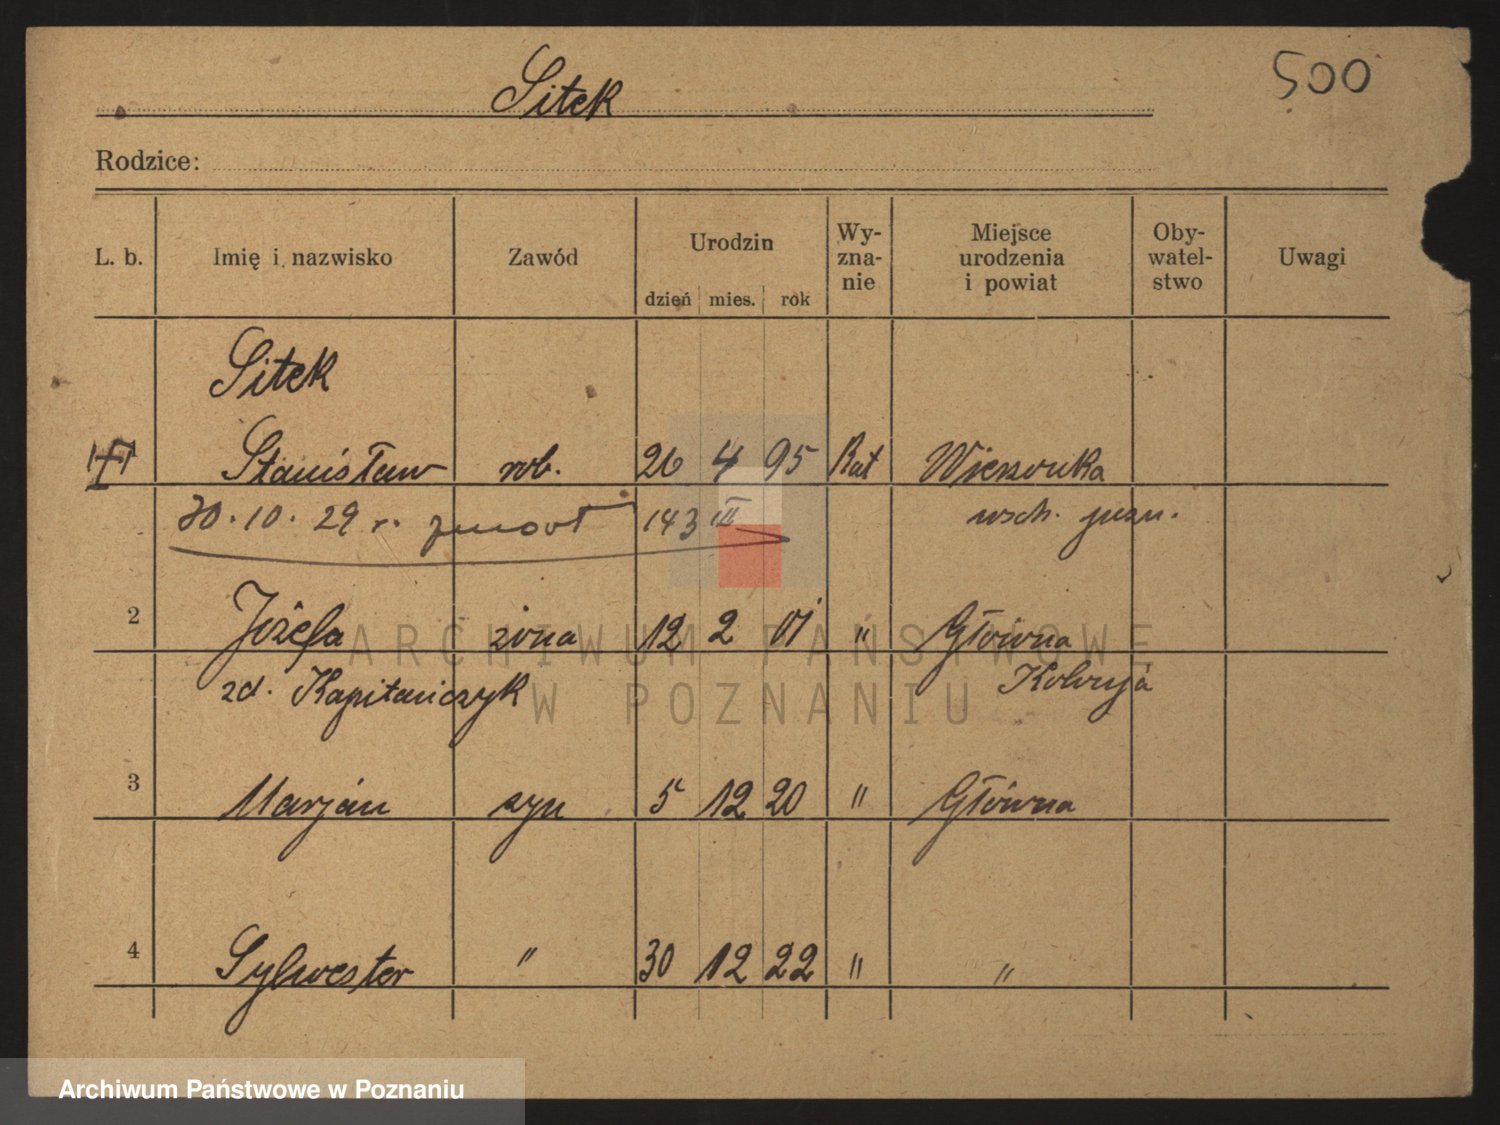 Sitek
500
Rodzice:
L. b. Imię i nazwisko Zawód Urodzin dzień mies. rok Wy-zna-nie Miejsce urodzenia i powiat Oby-watel-stwo Uwagi
Sitek
Stanisław rob. 26 4 95 Kat
30. 10. 29 r. zmarł 143 III wsch.
2 Józefa żona 12 2 01 " Główna
zd. Kapitańczyk
3 Marjan syn 5 12 20 " Główna
4 Sylwester " 30 12 22 " "
ARCHIWUM PAŃSTWOWE
W POZNANIU
Archiwum Państwowe w Poznaniu